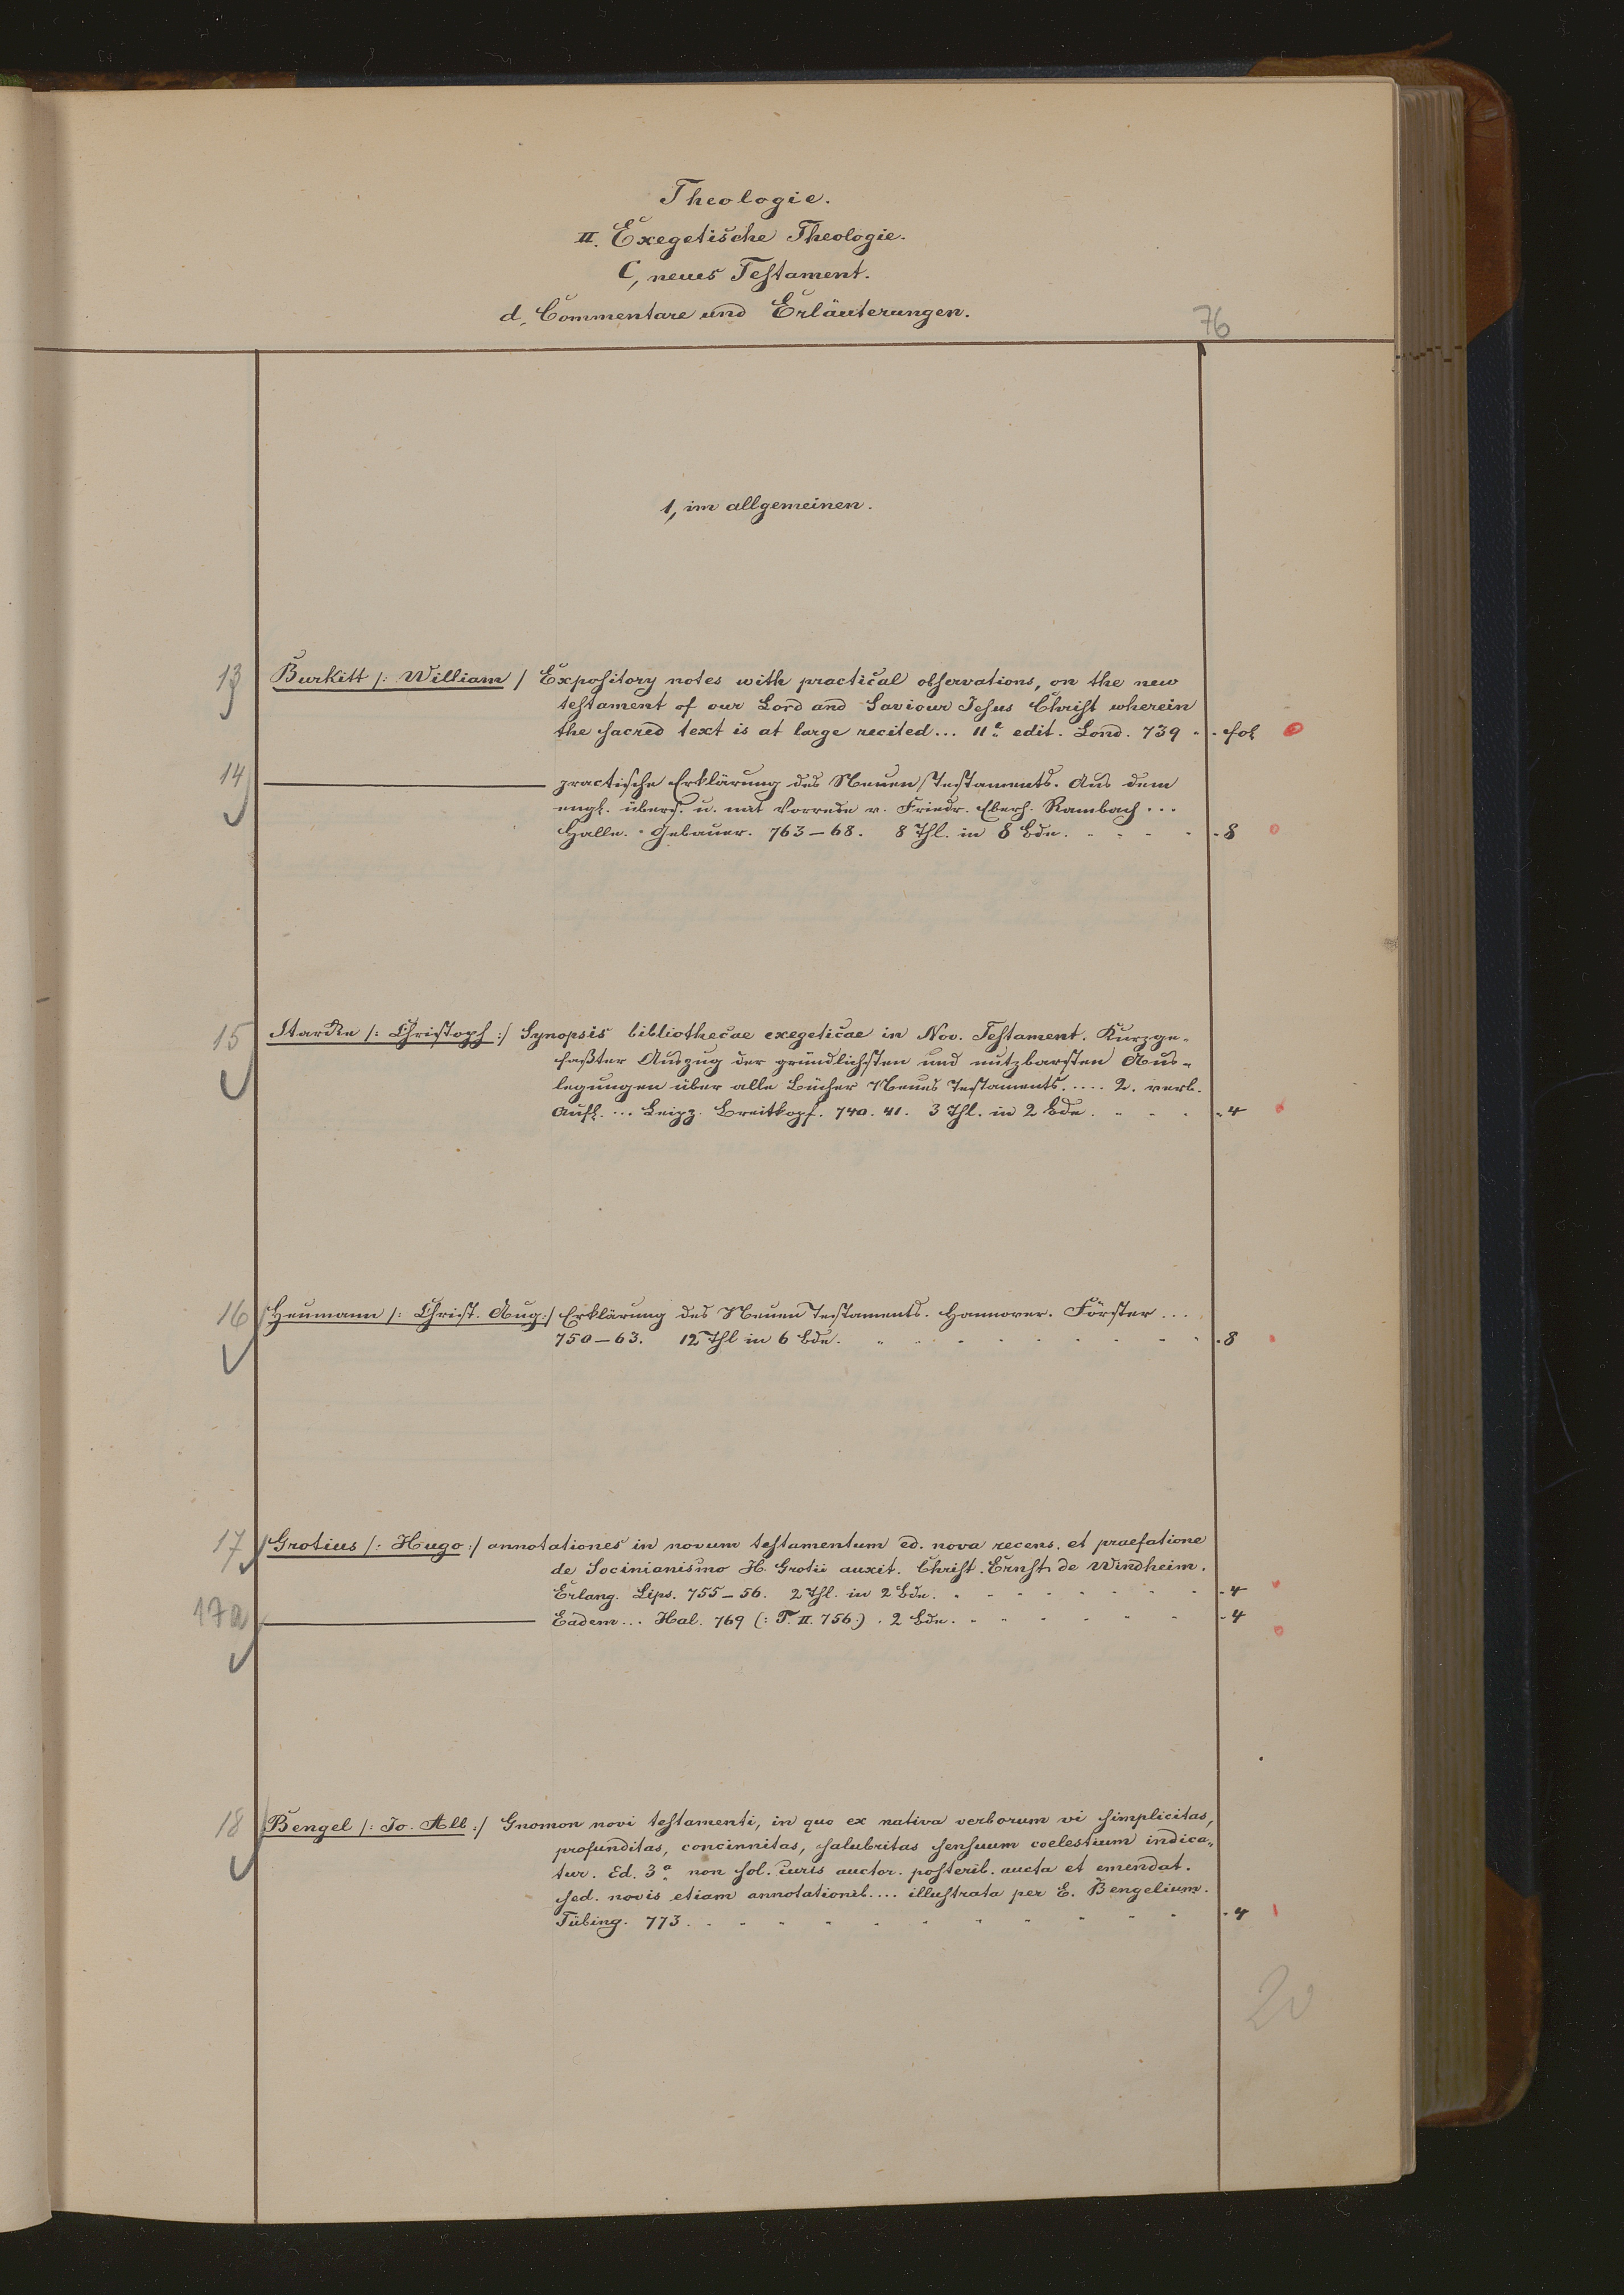 Theologie.
II. Exegetische Theologie.
C, neues Testament.
d, Commentare und Erläuterungen.
76
1, im allgemeinen.
13 Burkitt /: William / Expository notes with practical observations, on the new
testament of our Lord and Saviour Jesus Christ wherein
the sacred text is at large recited... 11e edit. Lond. 739 - - fol
14 ——— practische Erklärung des Neuen Testaments. Aus dem
engl. übers. u. mit Vorrede v. Friedr. Eberh. Rambach...
Halle. Gebauer. 763–68. 8 Thl. in 8 Bde. - - - - - 8
15 Starcke /: Christoph :/ Synopsis bibliothecae exegeticae in Nov. Testament. Kurzge-
faßter Auszug der gründlichsten und nutzbarsten Aus-
legungen über alle Bücher Neues Testaments..... 2. verb.
Aufl. ... Leipz. Breitkopf. 740. 41. 3 Thl. in 2 Bde. - - - - 4
16 Heumann /: Christ. Aug :/ Erklärung des Neuen Testaments. Hannover. Förster...
750–63. 12 Thl in 6 Bde. - - - - - - - - - - 8
17 Grotius /: Hugo :/ annotationes in novum testamentum ed. nova recens. et praefatione
de Socinianismo H. Grotii auxit. Christ. Ernst de Windheim.
Erlang. Lips. 755–56. 2 Thl. in 2 Bde. - - - - - - - - 4
17a ——— Eadem... Hal. 769 (: T. II. 756.) . 2 Bde. - - - - - - - 4
18 Bengel /: Jo. Alb :/ Gnomon novi testamenti, in quo ex nativa verborum vi simplicitas,
profunditas, concinnitas, salubritas sensuum coelestium indica-
tur. Ed. 3a non sol. curis auctor. posterib. aucta et emendat.
sed. novis etiam annotationib.... illustrata per E. Bengelium.
Tübing. 773. - - - - - - - - - - - - 4
20